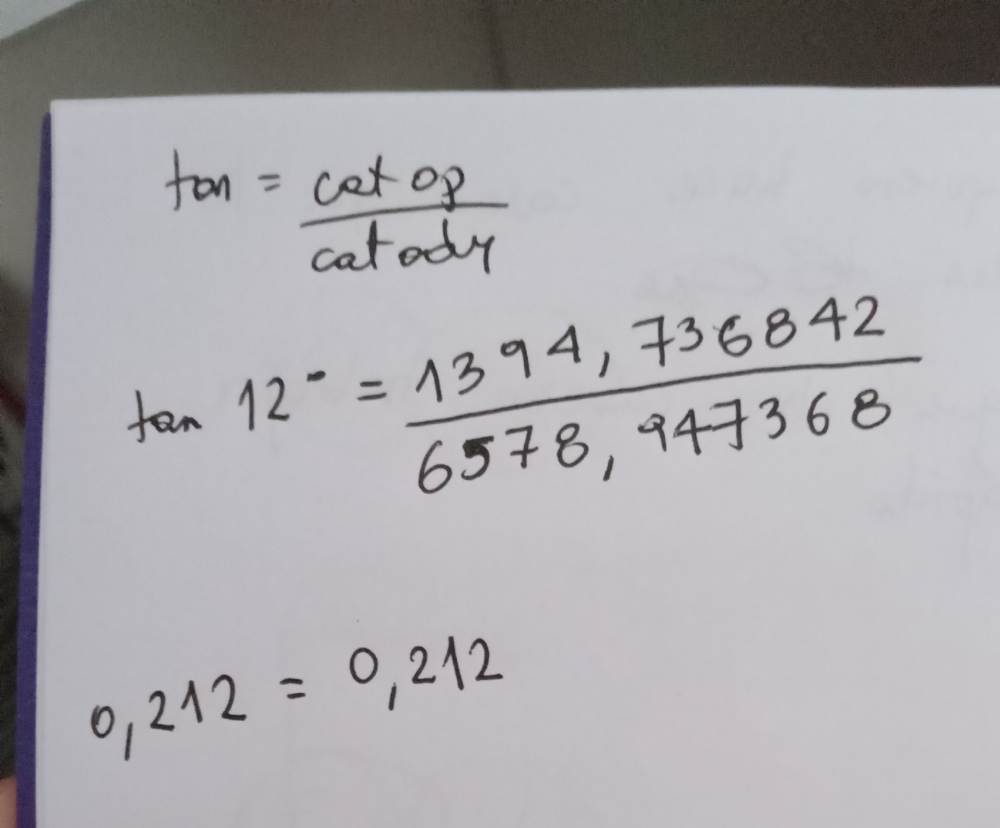 tan = cat op
cat ady
tan 12° = 1394,736842
6578,947368
0,212 = 0,212